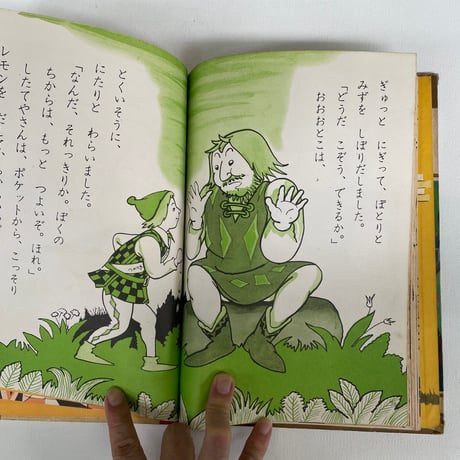 ぎゅっと にぎって、ぽとりと
みずを しぼりだしました。
「どうだ こぞう、できるか。」
おおおとこは、
とくいそうに、
にたりと わらいました。
「なんだ、それっきりか。ぼくの
ちからは、もっと つよいぞ。ほれ。」
したてやさんは、ポケットから、こっそり
レモンを だ